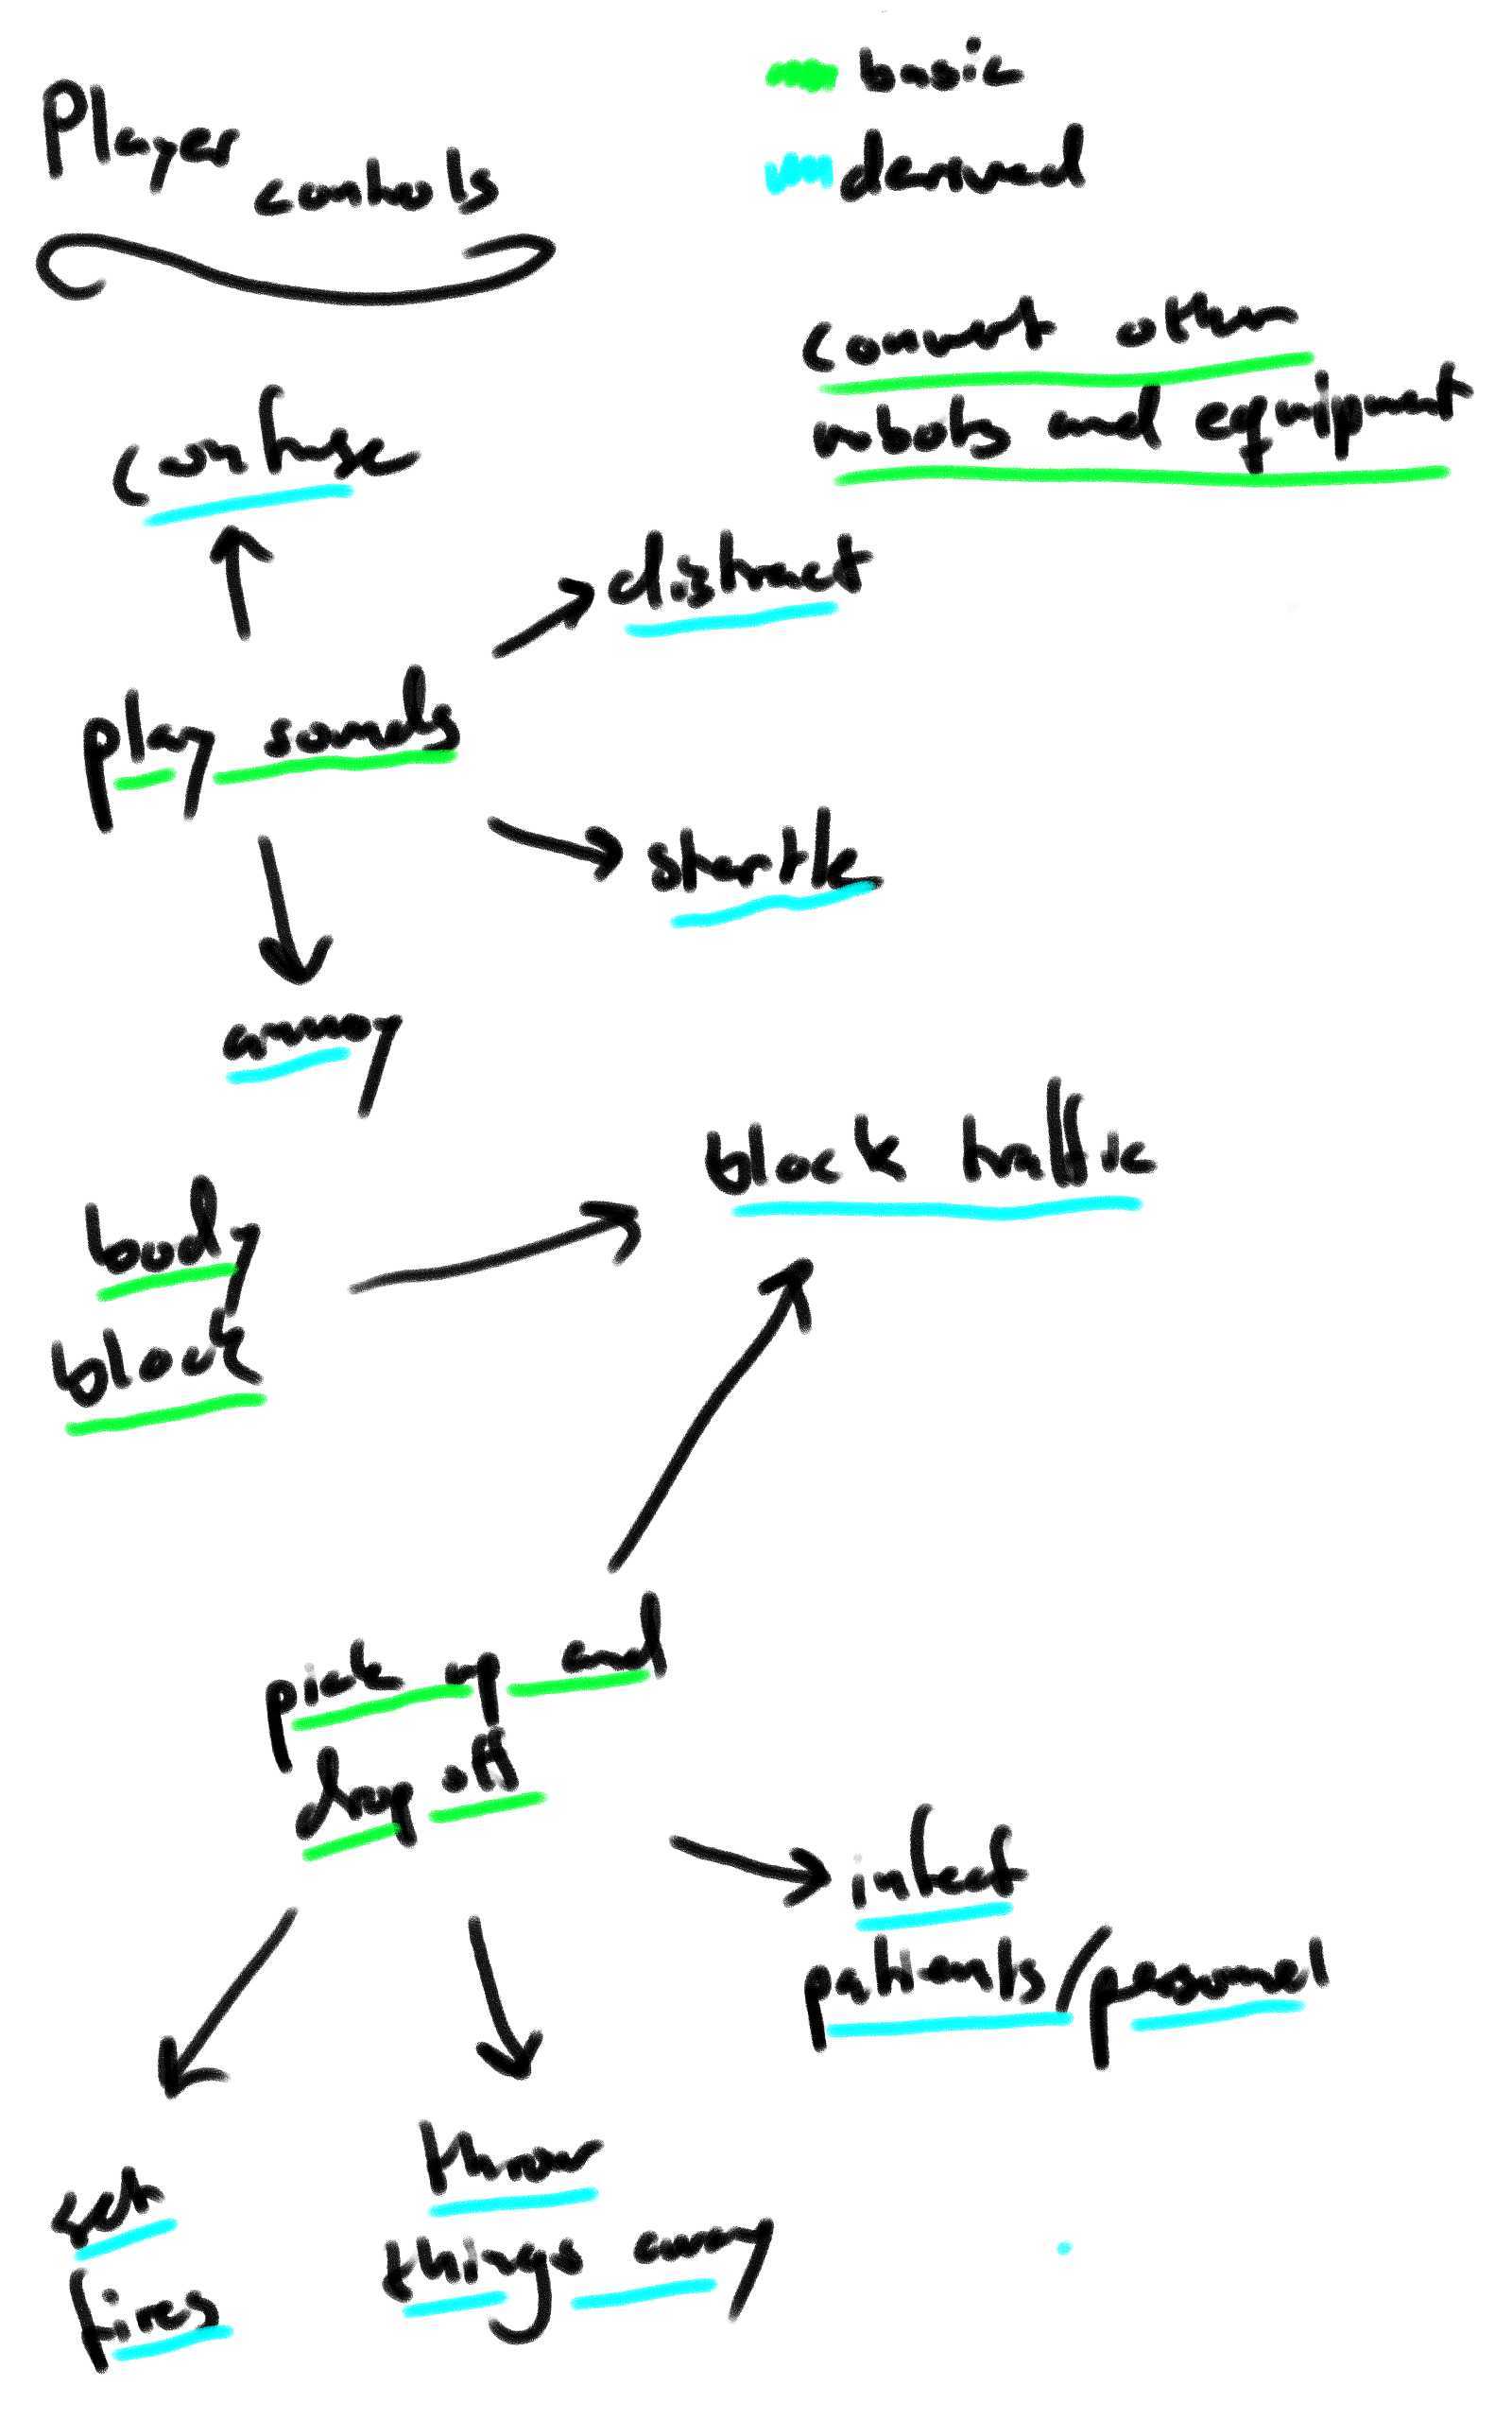 Player controls
basic
derived
convert other
robots and equipment
confuse
distract
play sounds
startle
annoy
block traffic
body
block
pick up and
drop off
infect
patients/personnel
set
fires
throw
things away